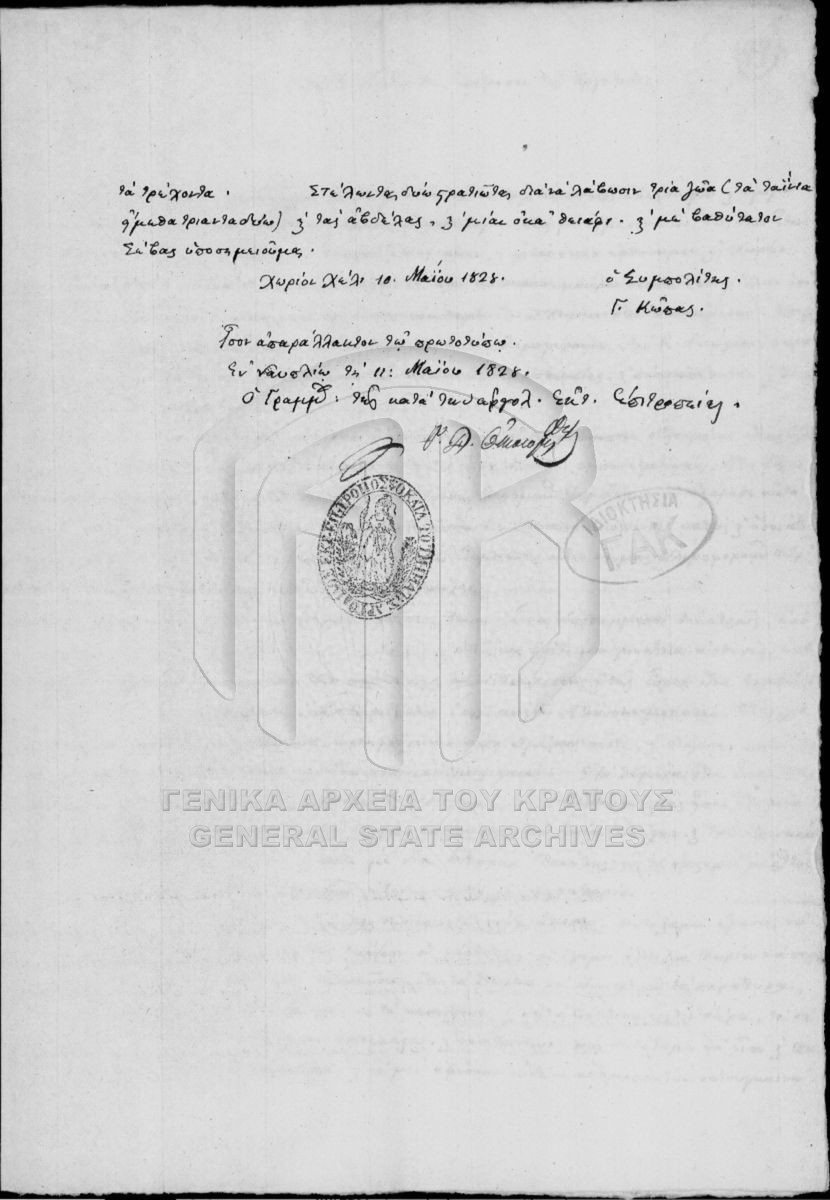 τὰ τρέχοντα. Στέλωντας δύω στρατιῶτας διὰ νὰ λάβωσιν τρία ζῶα (τὰ
ἤμεθα τριανταδύω) ϗ ταῖς ἀβδέλας, ϗ μίαν ὀκᾶ θειάφι. ϗ μὲ βαθύτατον
Σέβας ὑποσημειοῦμαι.
Χωρίον Χέλι 10. Μαΐου 1828. ὁ Συμπολίτης.
Γ. Κώπας.
Ἶσον ἀπαράλλακτον τῷ πρωτοτύπῳ.
Ἐν Ναυπλίῳ τῇ 11: Μαΐου 1828.
Ὁ Γραμμ: τῆς κατὰ τὴν Ἀργολ. Ἐκτ. Ἐπιτροπείας.
ΙΔΙΟΚΤΗΣΙΑ
ΓΑΚ
ΓΕΝΙΚΑ ΑΡΧΕΙΑ ΤΟΥ ΚΡΑΤΟΥΣ
GENERAL STATE ARCHIVES